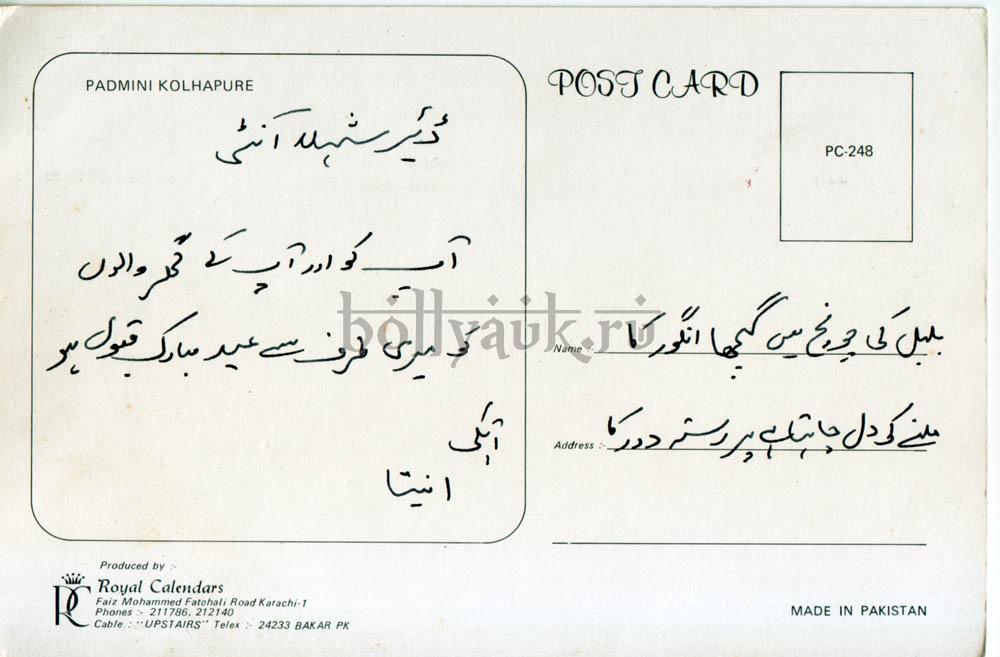 PADMINI KOLHAPURE
ڈئیر شہلہ آنٹی
آپ کو اور آپ کے گھر والوں
کو میری طرف سے عید مبارک قبول ہو
آپکی
انیتا
Produced by :-
Royal Calendars
Faiz Mohammed Fatehali Road Karachi-1
Phones :- 211786, 212140
Cable :- "UPSTAIRS" Telex :- 24233 BAKAR PK
POST CARD
PC-248
bollyauk.ru
Name :- بلبل کی چونچ میں گچھا انگور کا
Address :- ملنے کو دل چاہتا ہے پر رستہ دور کا
MADE IN PAKISTAN